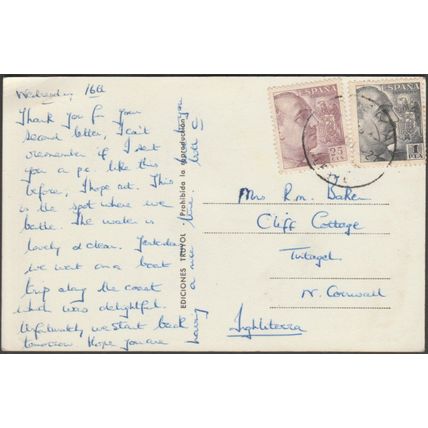 Wednesday 16th
Thank you for your
second letter, I can't
remember if I sent
you a p.c. like this
before, I hope not. This
is the spot where we
bathe. The water is
lovely & clear. Yesterday
we went on a boat
trip along the coast
which was delightful.
Unfortunately we start back
tomorrow. Hope you are
having a nice time
EDICIONES TRUYOL - Prohibida la reproducción
ESPAÑA
25
CTS
ESPAÑA
1
PTA
Mrs R.M. Baker
Cliff Cottage
Tintagel
N. Cornwall
Inghilterra